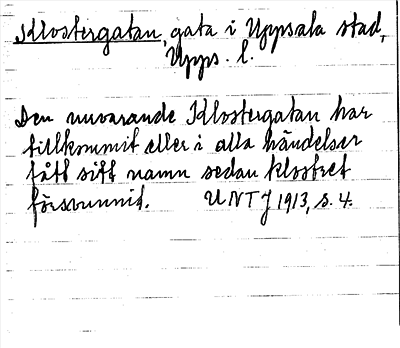 Klostergatan, gata i Uppsala stad,
Upps. l.
Den nuvarande Klostergatan har
tillkommit eller i alla händelser
fått sitt namn sedan klostret
försvunnit. UNT J 1913, s. 4.